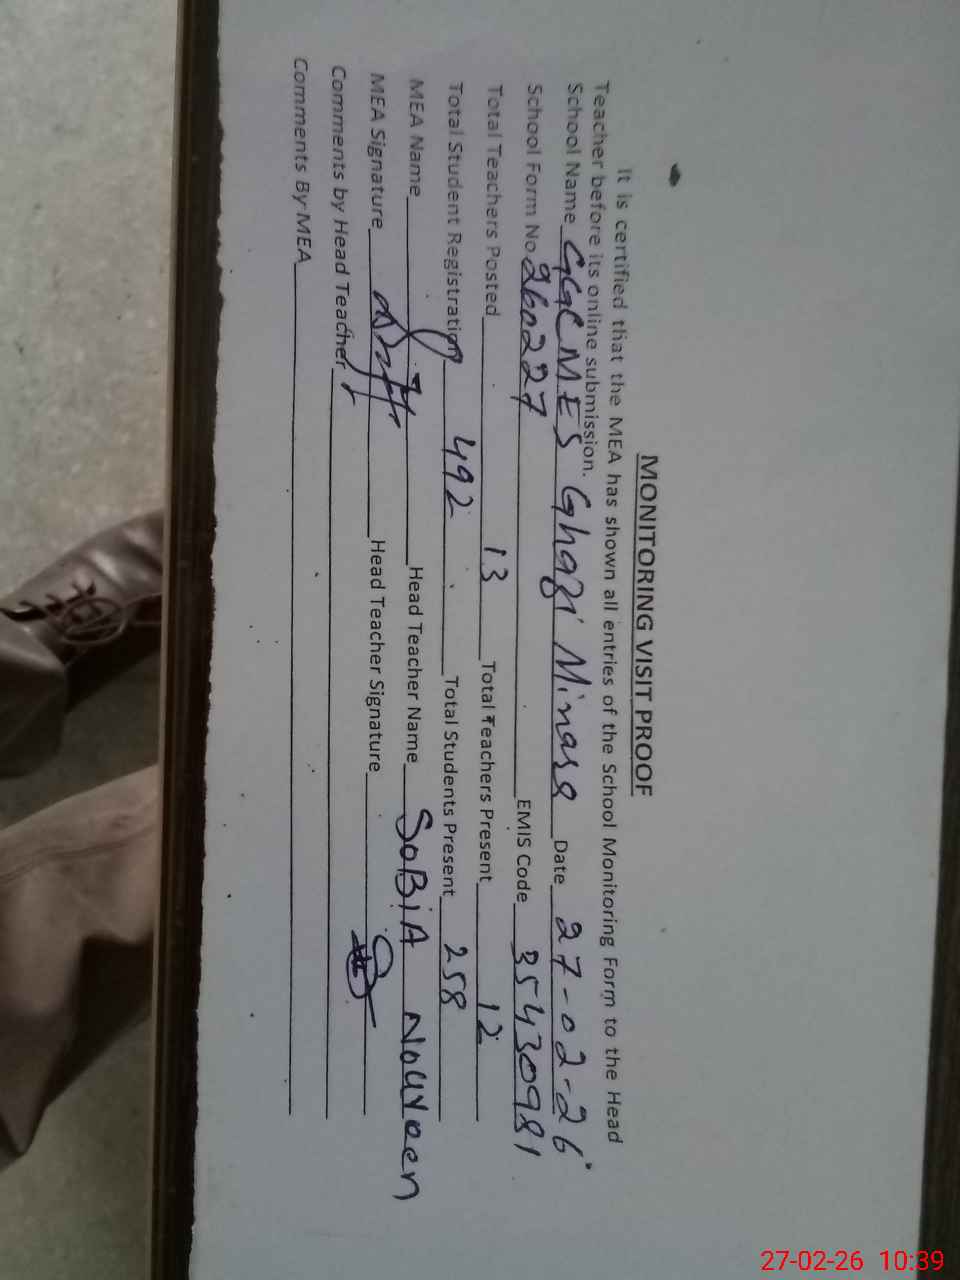 MONITORING VISIT PROOF
It is certified that the MEA has shown all entries of the School Monitoring Form to the Head
Teacher before its online submission.
School Name GGCMES Ghazi Minara Date 27-02-26
School Form No. 260227 EMIS Code 35430981
Total Teachers Posted 13 Total Teachers Present 12
Total Student Registration 492 Total Students Present 258
MEA Name Head Teacher Name SOBIA Noureen
MEA Signature Head Teacher Signature
Comments by Head Teacher
Comments By MEA
27-02-26 10:39